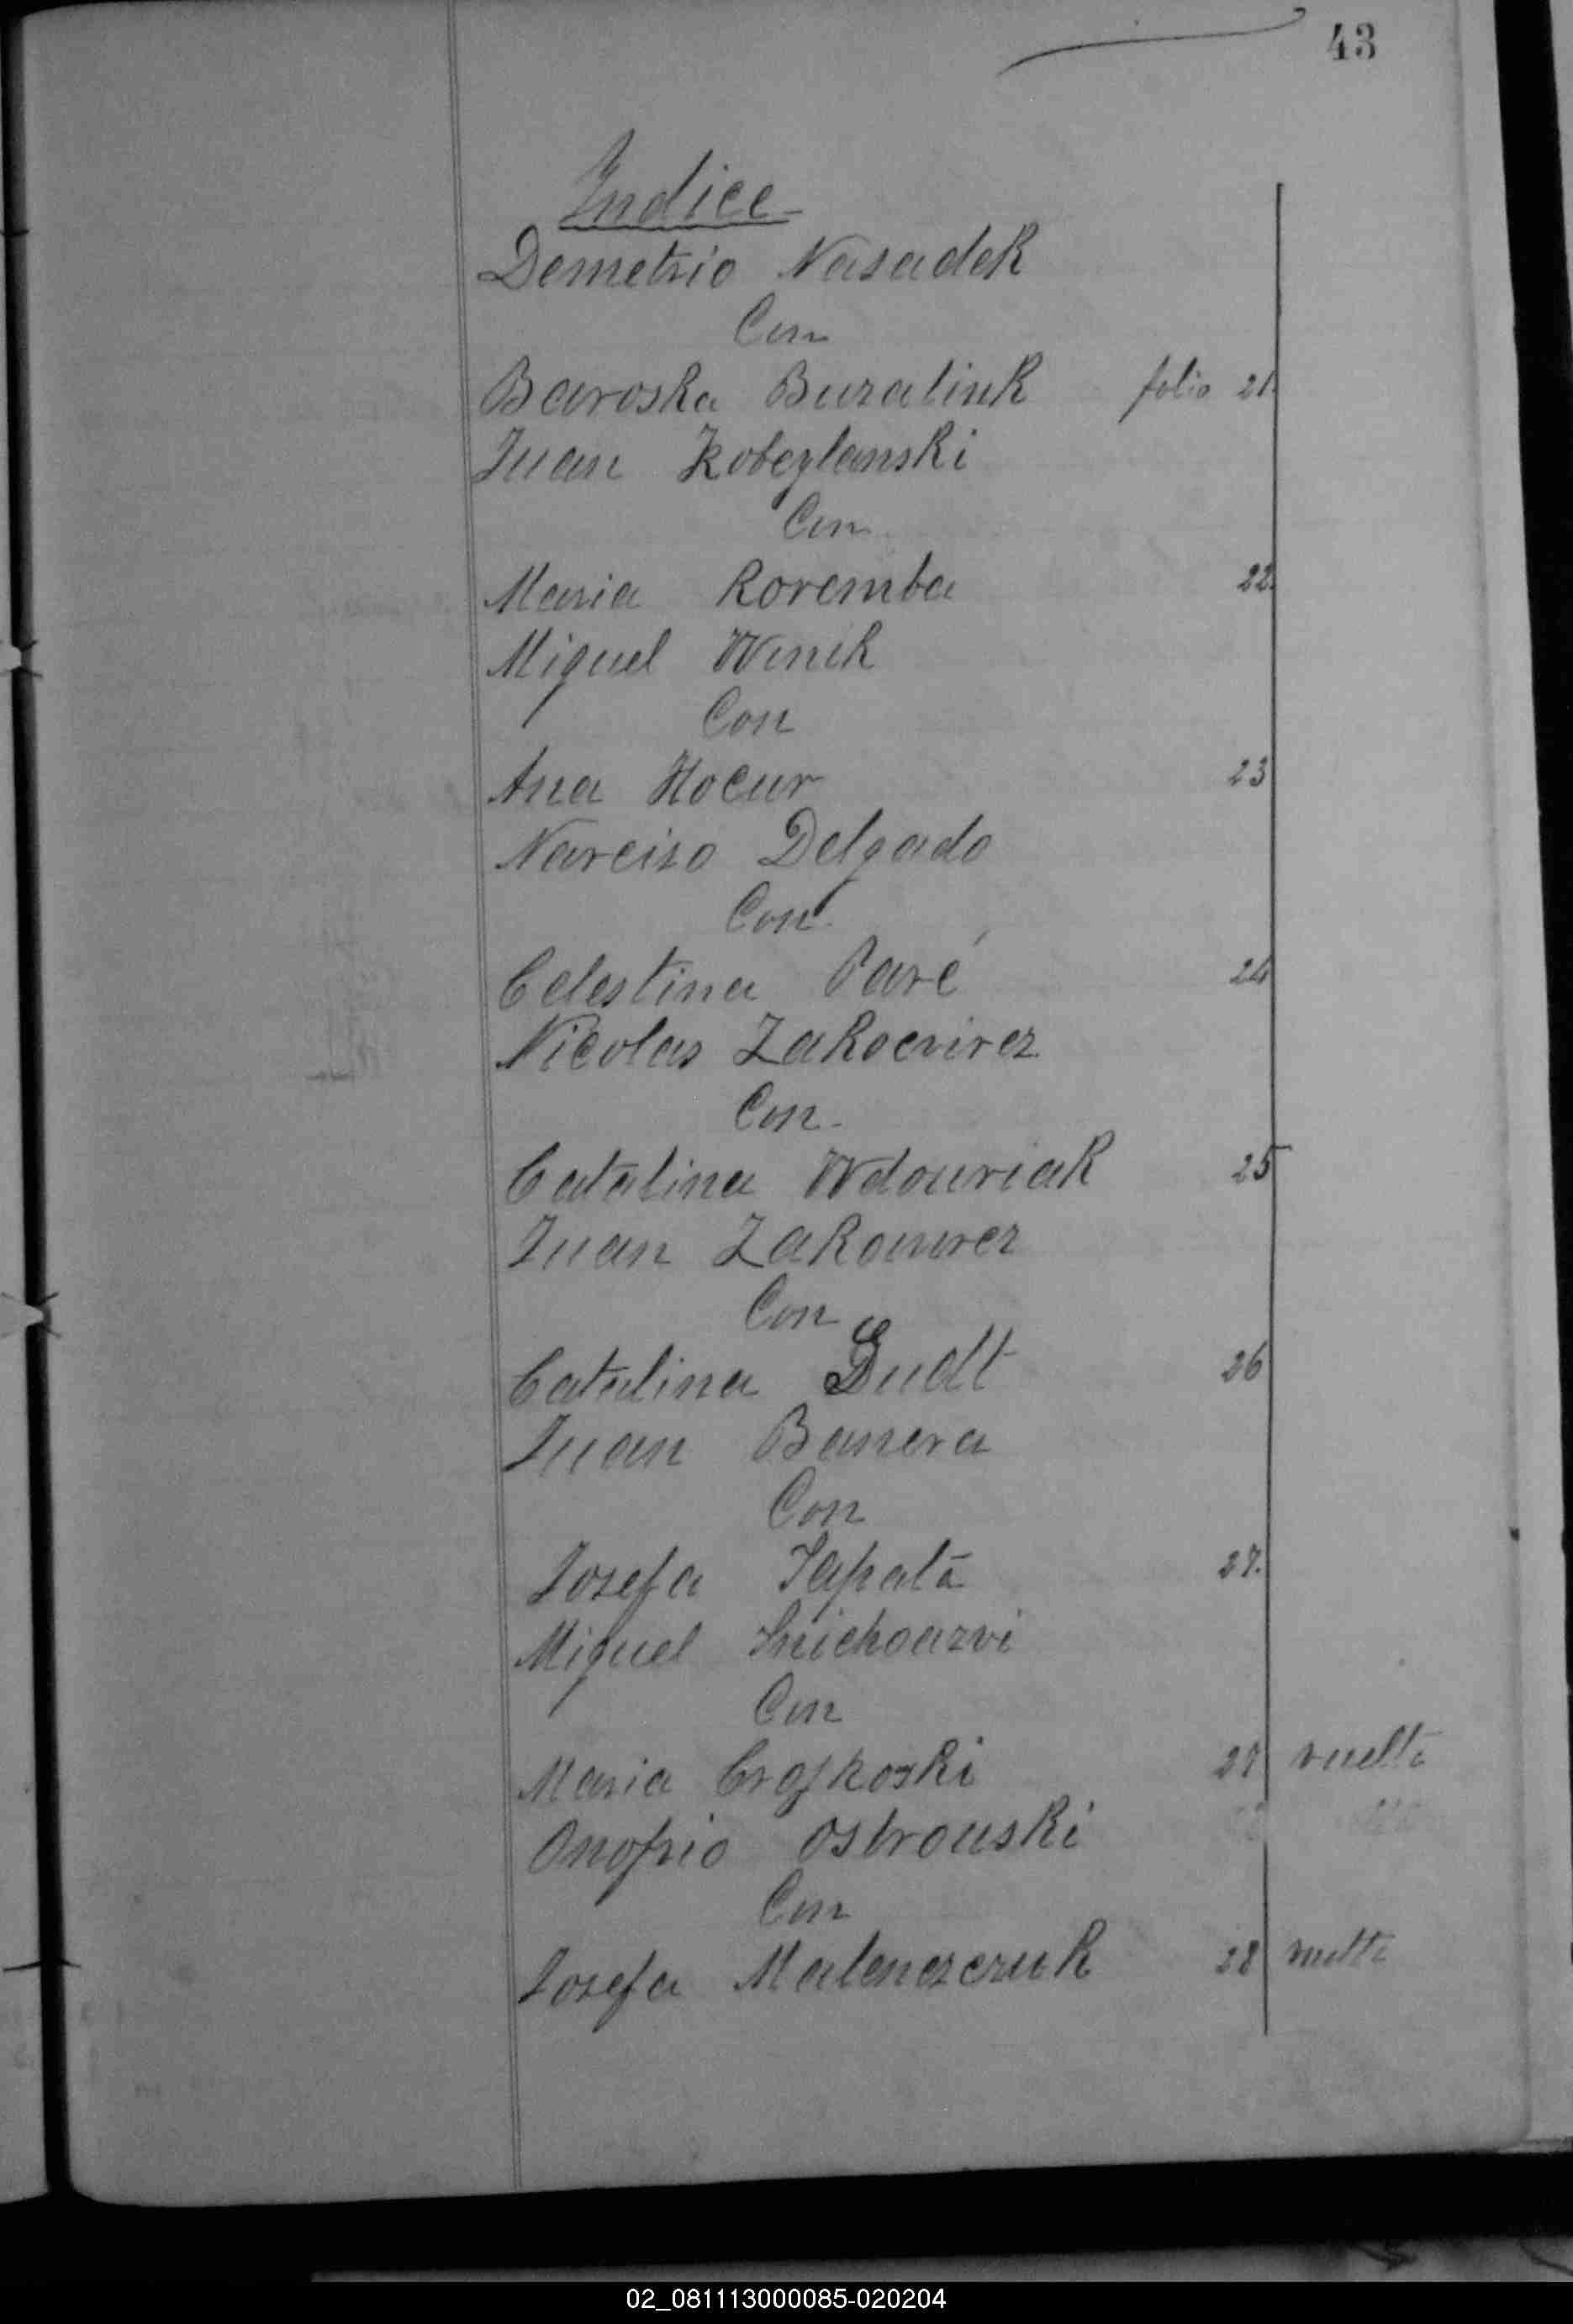 43
Indice
Demetrio Nasadek
Con
Baroska Buzalink folio 21.
Juan Kobezlanski
Con
Maria Koremba 22.
Miguel Wenik
Con
Ana Hocur 23
Narciso Delgado
Con
Celestina Paré 24
Nicolas Zakocvirez
Con
Catalina Wdouriak 25
Juan Zakouvrez
Con
Catalina Gudt 26
Juan Banera
Con
Josefa Sapata 27.
Miguel
Con
Maria 27 vuelta
Onofrio Ostrouski
Con
Josefa Malenczczuk 28 vuelta
02_081113000085-020204